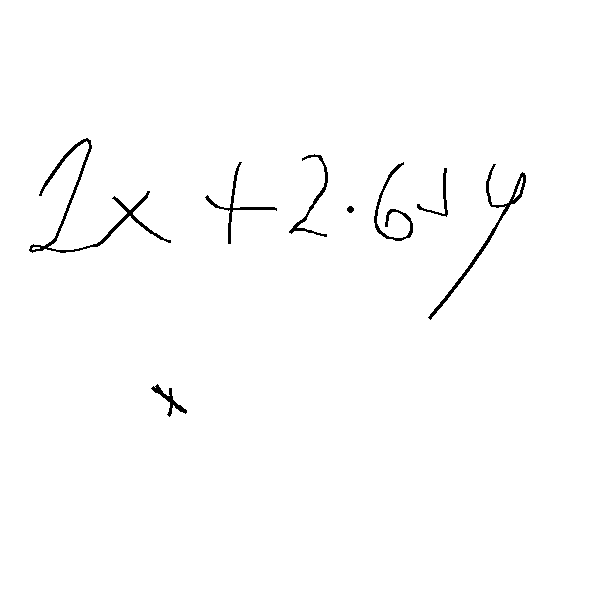 2x + 2.6 y
x